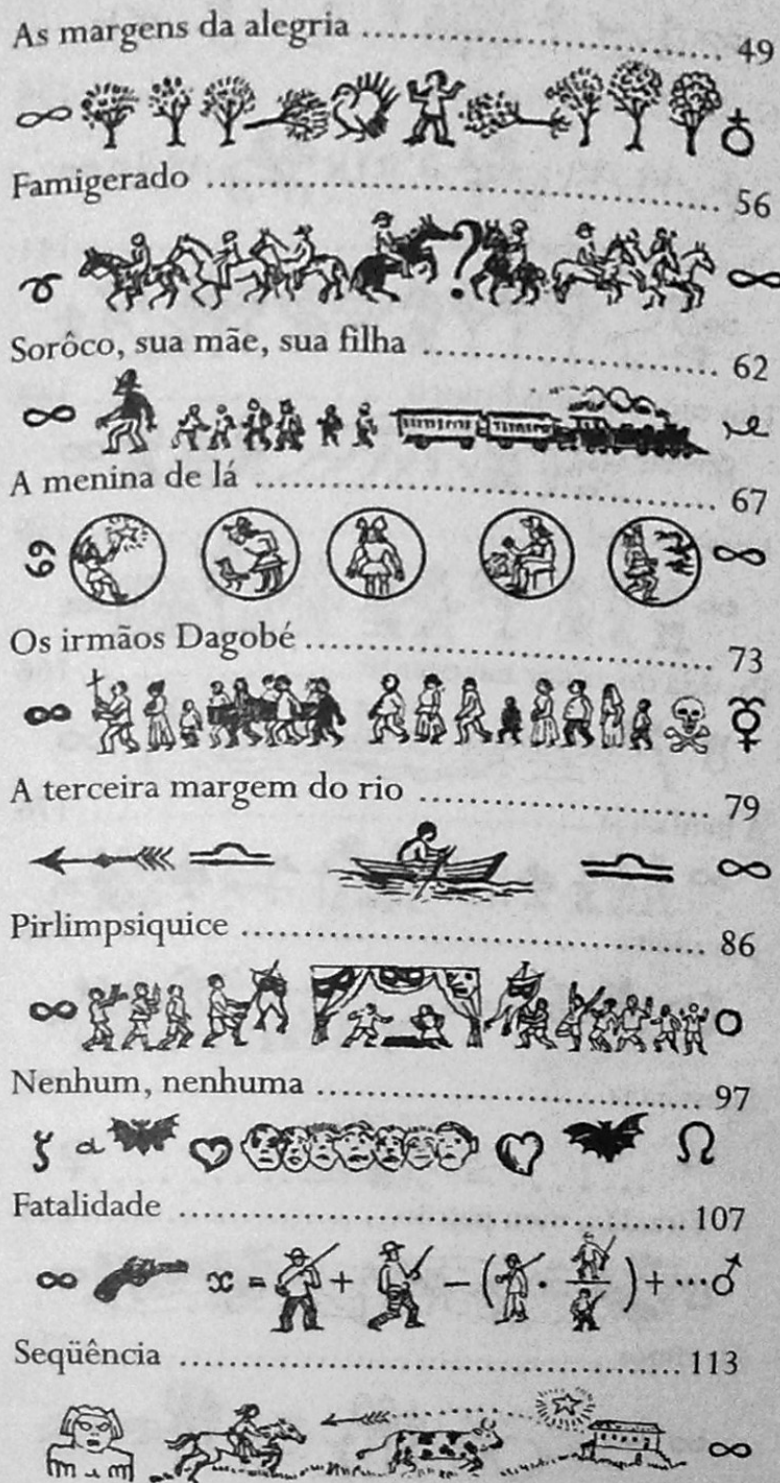 As margens da alegria ........................................ 49
Famigerado ........................................ 56
?
Sorôco, sua mãe, sua filha ........................................ 62
A menina de lá ........................................ 67
69
Os irmãos Dagobé ........................................ 73
A terceira margem do rio ........................................ 79
Pirlimpsiquice ........................................ 86
Nenhum, nenhuma ........................................ 97
Fatalidade ........................................ 107
x = + − ( · ) + ···
Seqüência ........................................ 113